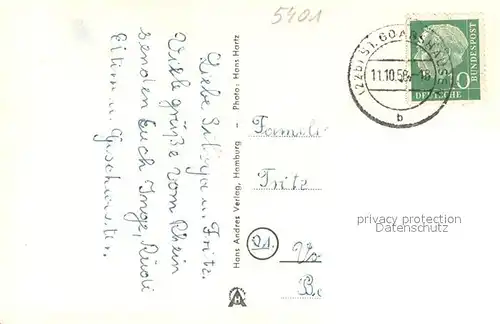 5401
Liebe u. Fritz.
Viele grüße vom Rhein
senden Euch Inge, Rüdi
Eltern u. Geschwister.
Hans Andres Verlag, Hamburg - Photo: Hans Hartz
(22b) ST. GOARSHAUSEN
11.10.58-18
b
10
DEUTSCHE
BUNDESPOST
Famili
Fritz
privacy protection